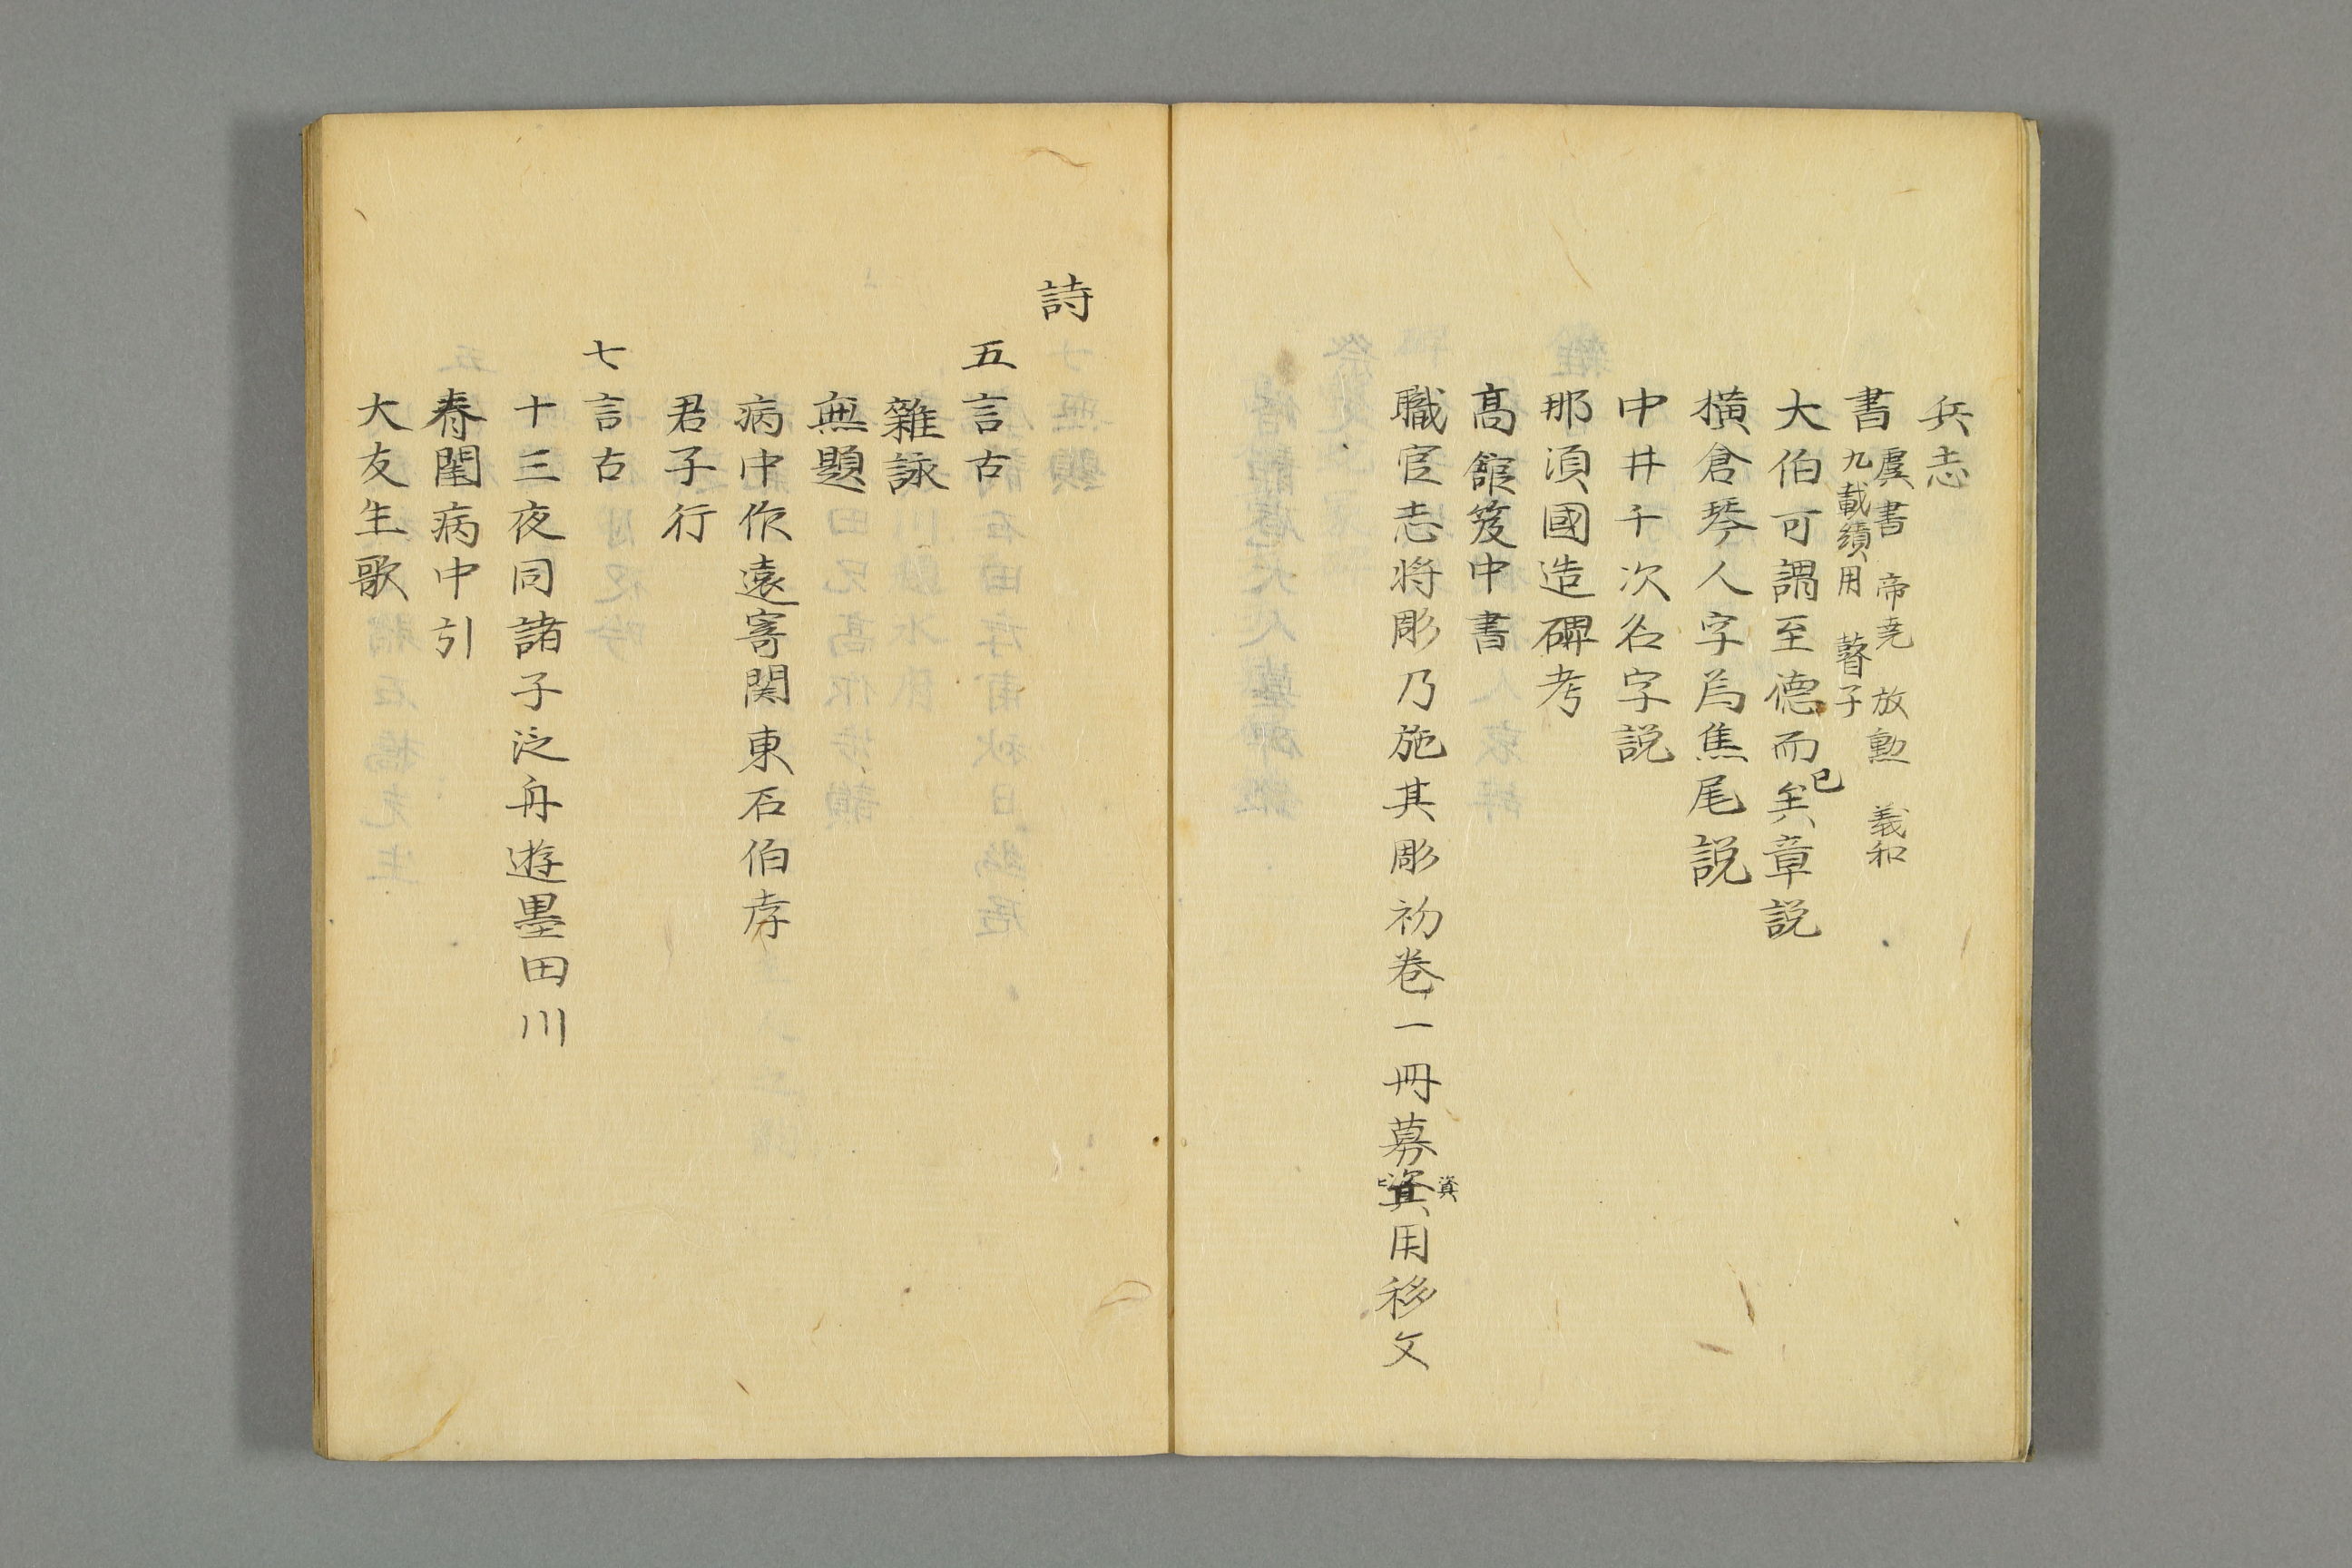 兵志
書
虞書 帝尭 放勲 義和
九載績用 瞽子
大伯可謂至德而已矣章説
横倉琴人字為焦尾説
中井千次名字説
那湏國造碑考
髙舘笈中書
職官志将彫乃施其彫初卷一冊募資用移文
資
ヒ
詩
五言古
雜詠
無題
病中作遠寄関東石伯孝
君子行
七言古
十三夜同諸子泛舟遊墨田川
春閨病中引
大友生歌